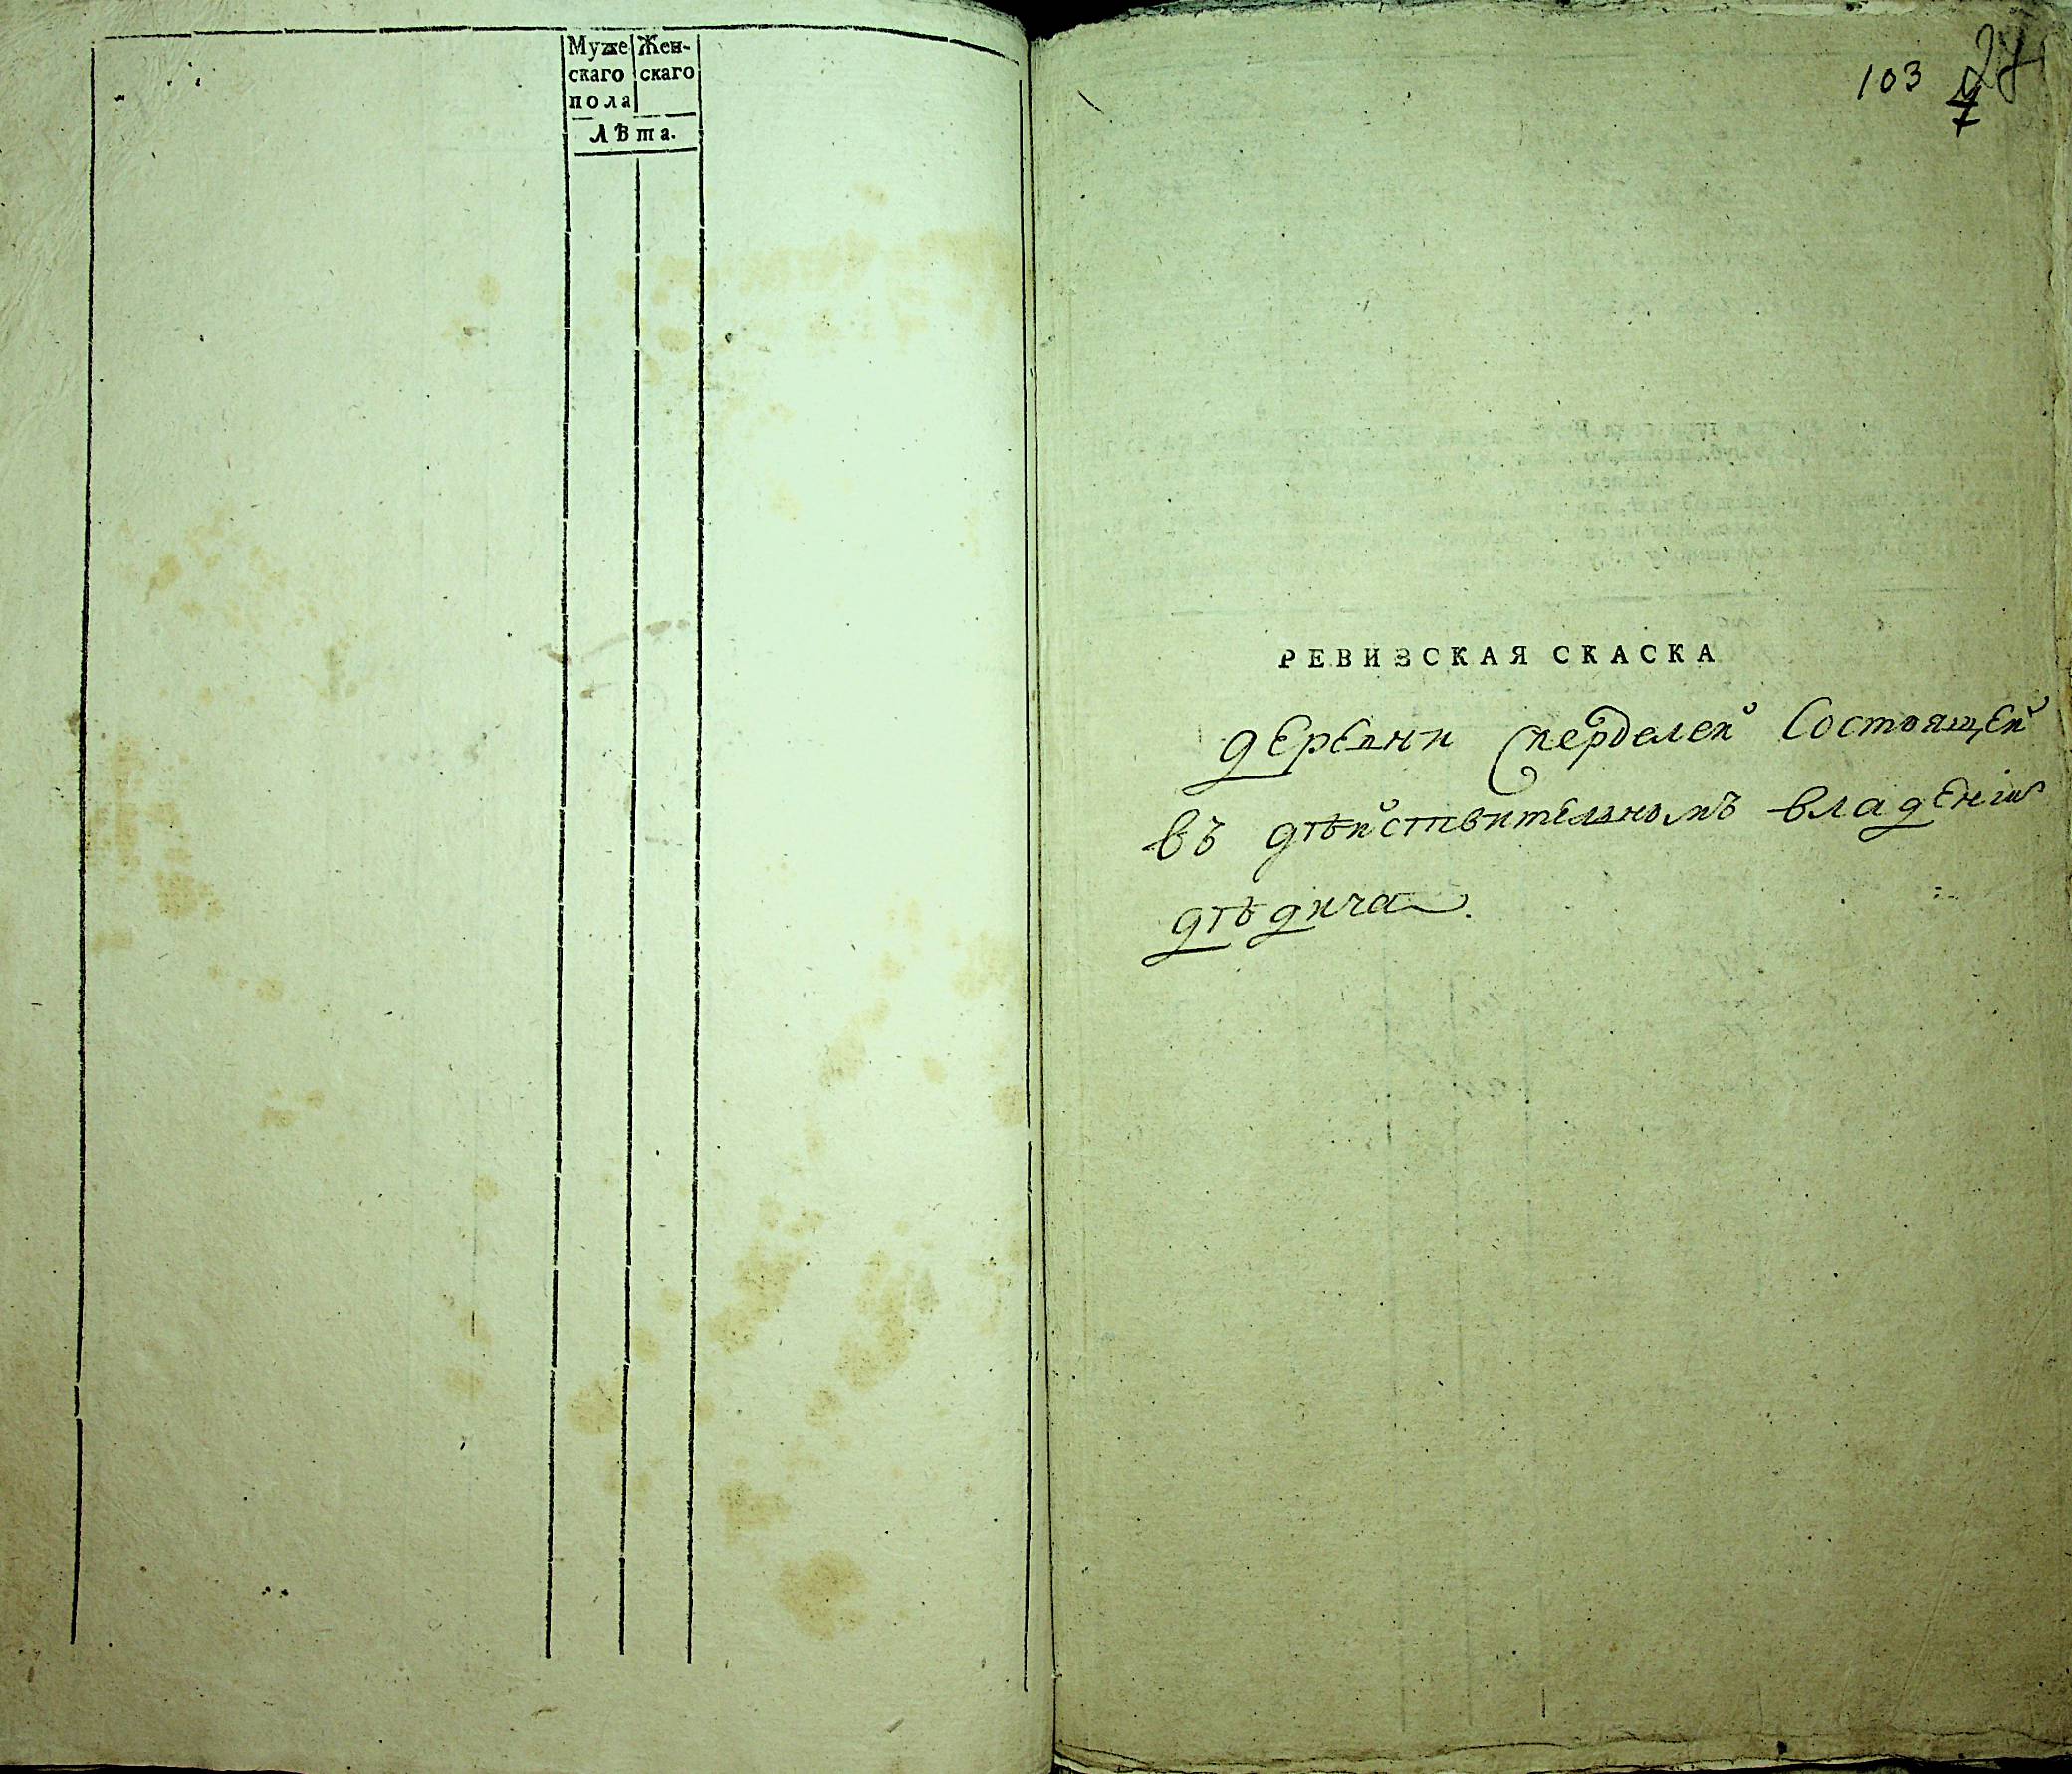 Муже Жен-
скаго скаго
пола
Лѣта.
103
7
РЕВИЗСКАЯ СКАСКА
деревни Скерделей Состоящей
въ дѣйствительномъ владении
дѣдича.